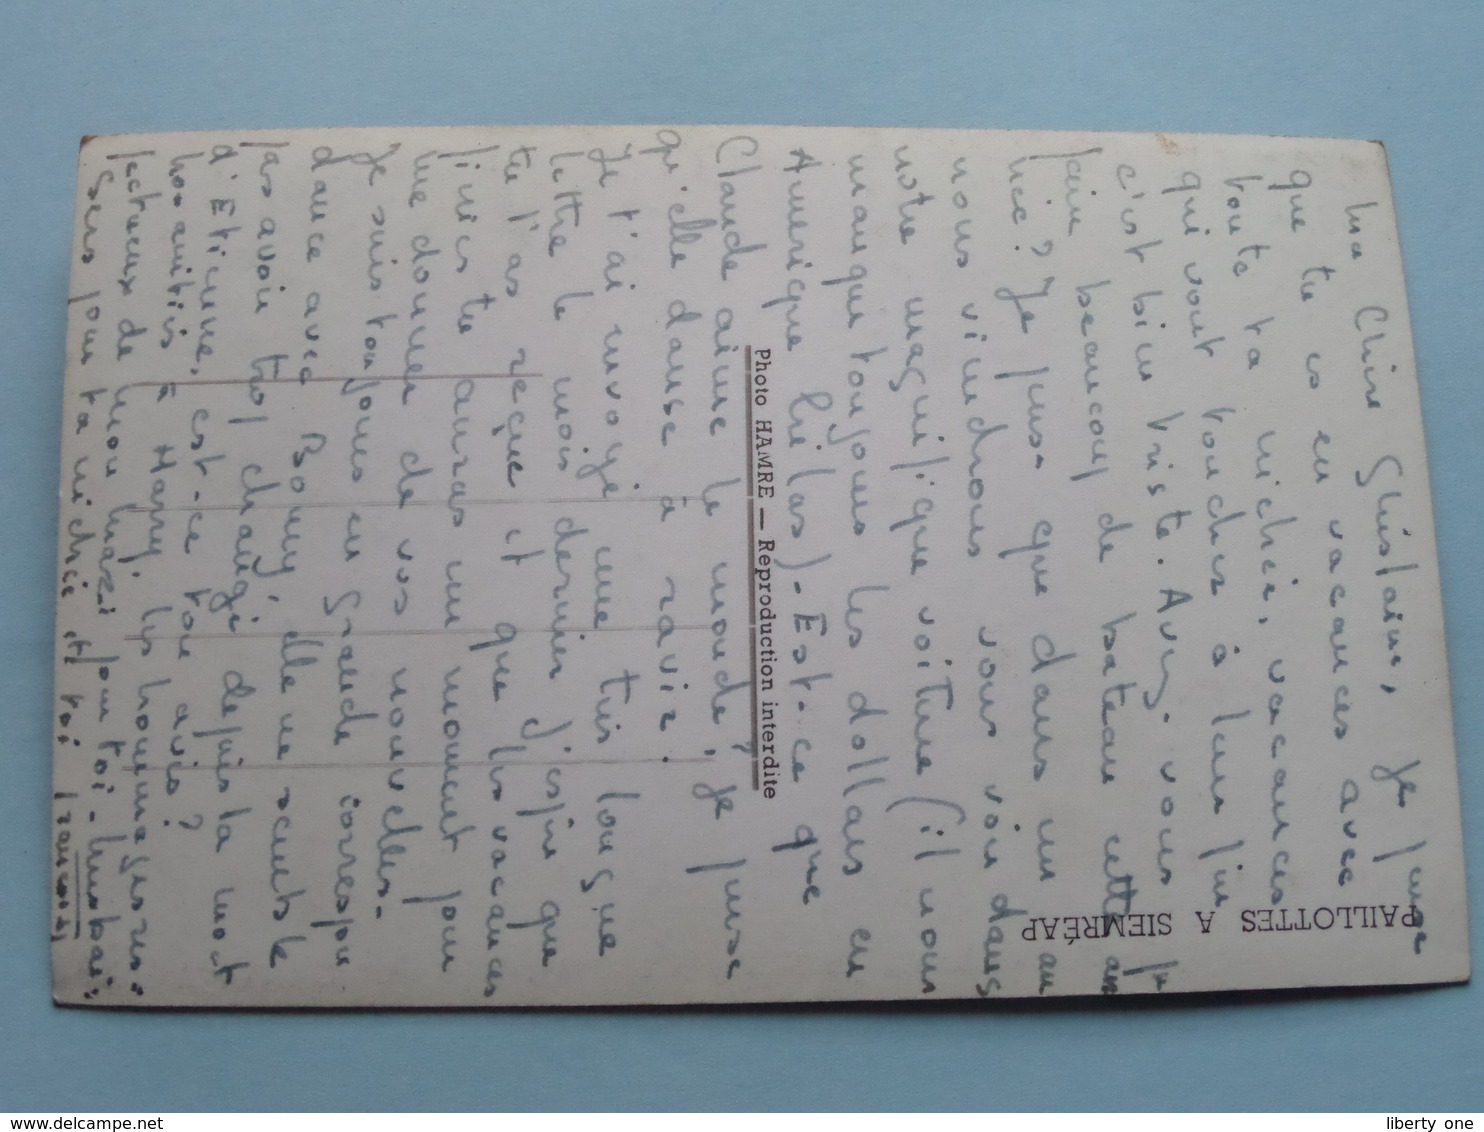 Ma Chère Ghislaine, Je pense
que tu es en vacances avec
toute ta nichée, vacances
qui vont toucher à leur fin
c'est bien triste. Avez-vous pu
faire beaucoup de bateau cette an
née? Je pense que dans un an
nous viendrons vous voir dans
notre magnifique voiture (il nous
manque toujours les dollars en
Amérique hélas) - Est-ce que
Claude aime le monde, je pense
qu'elle danse à ravir.
Je t'ai envoyé une très longue
lettre le mois dernier j'espère que
tu l'as reçue et que les vacances
finies tu auras un moment pour
me donner de vos nouvelles -
Je suis toujours en grande correspon
dance avec Bouny, elle ne semble
pas avoir trop changé depuis la mort
d'Etienne, est-ce ton avis?
Nos amitiés à Harry, les hommages res-
pectueux de mon mari pour toi -
Sens pour ta nichée et toi
PAILLOTTES A SIEMRÉAP
Photo HAMRE — Reproduction interdite
liberty one